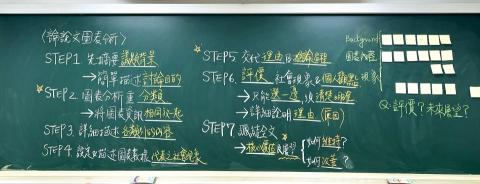 〈論說文圖表分析〉
STEP1 先摘要議題背景
→簡單描述討論目的
☆STEP2 圖表分析重分類
→將圖表資訊相同放一起
STEP3 詳細描述各類別的內容
STEP4 說明描述圖表數據代表之社會現象
☆
STEP5 交代理由及結論
STEP6 評價社會現象或個人觀點
→只能選一邊,須清楚明確
→詳細說明理由(原因)
STEP7 總結全文
→核心價值及展望 如何維持?
如何改善?
Background
圖表內容
現象
Q:評價?未來展望?